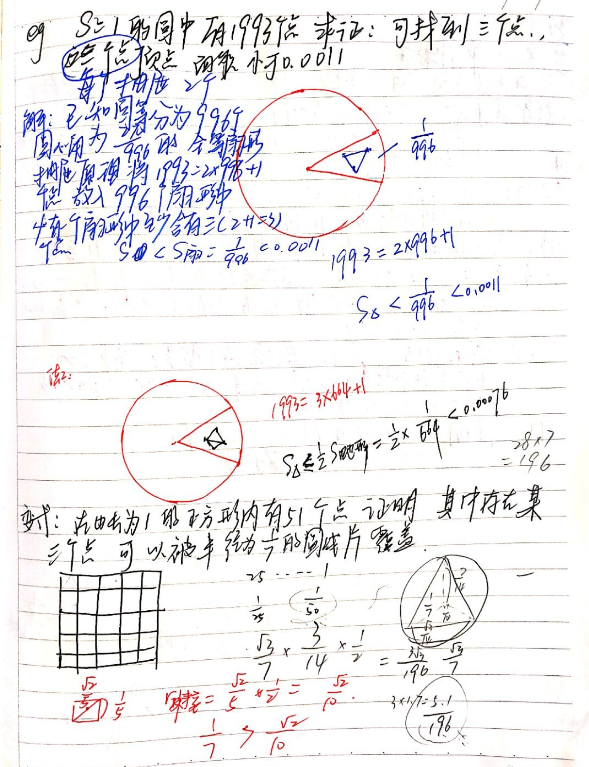 eg S=1的圆中有1993个点 求证:可找到三个点,
三个点顶点 面积小于0.0011
每个抽屉2个
解:已知圆等分为996个
圆心角为 的全等扇形
抽屉原理将1993=2×996+1
个点放入996个扇形中
有个扇形中至少含有三(2+1=3)
个点 S < S扇 = 1/996 < 0.0011
1/996
1993=2×996+1
S△ < 1/996 < 0.0011
法2:
1993=3×664+1
S△ ≤ 1/2 S扇形 = 1/2 × 1/664 < 0.00076
28×7
=196
变式:在边长为1的正方形内有51个点 证明 其中存在某
三个点 可以被半径为1/7的圆纸片覆盖.
25 ····· 1
1/25 1/50
√3/7 × 3/14 × 1/2 = 3√3/196 √3/7
3/14
1/7
1/14
3×1.7=5.1/196
√2/5 1/5
半径= √2/5 × 1/2 = √2/10.
1/7 > √2/10